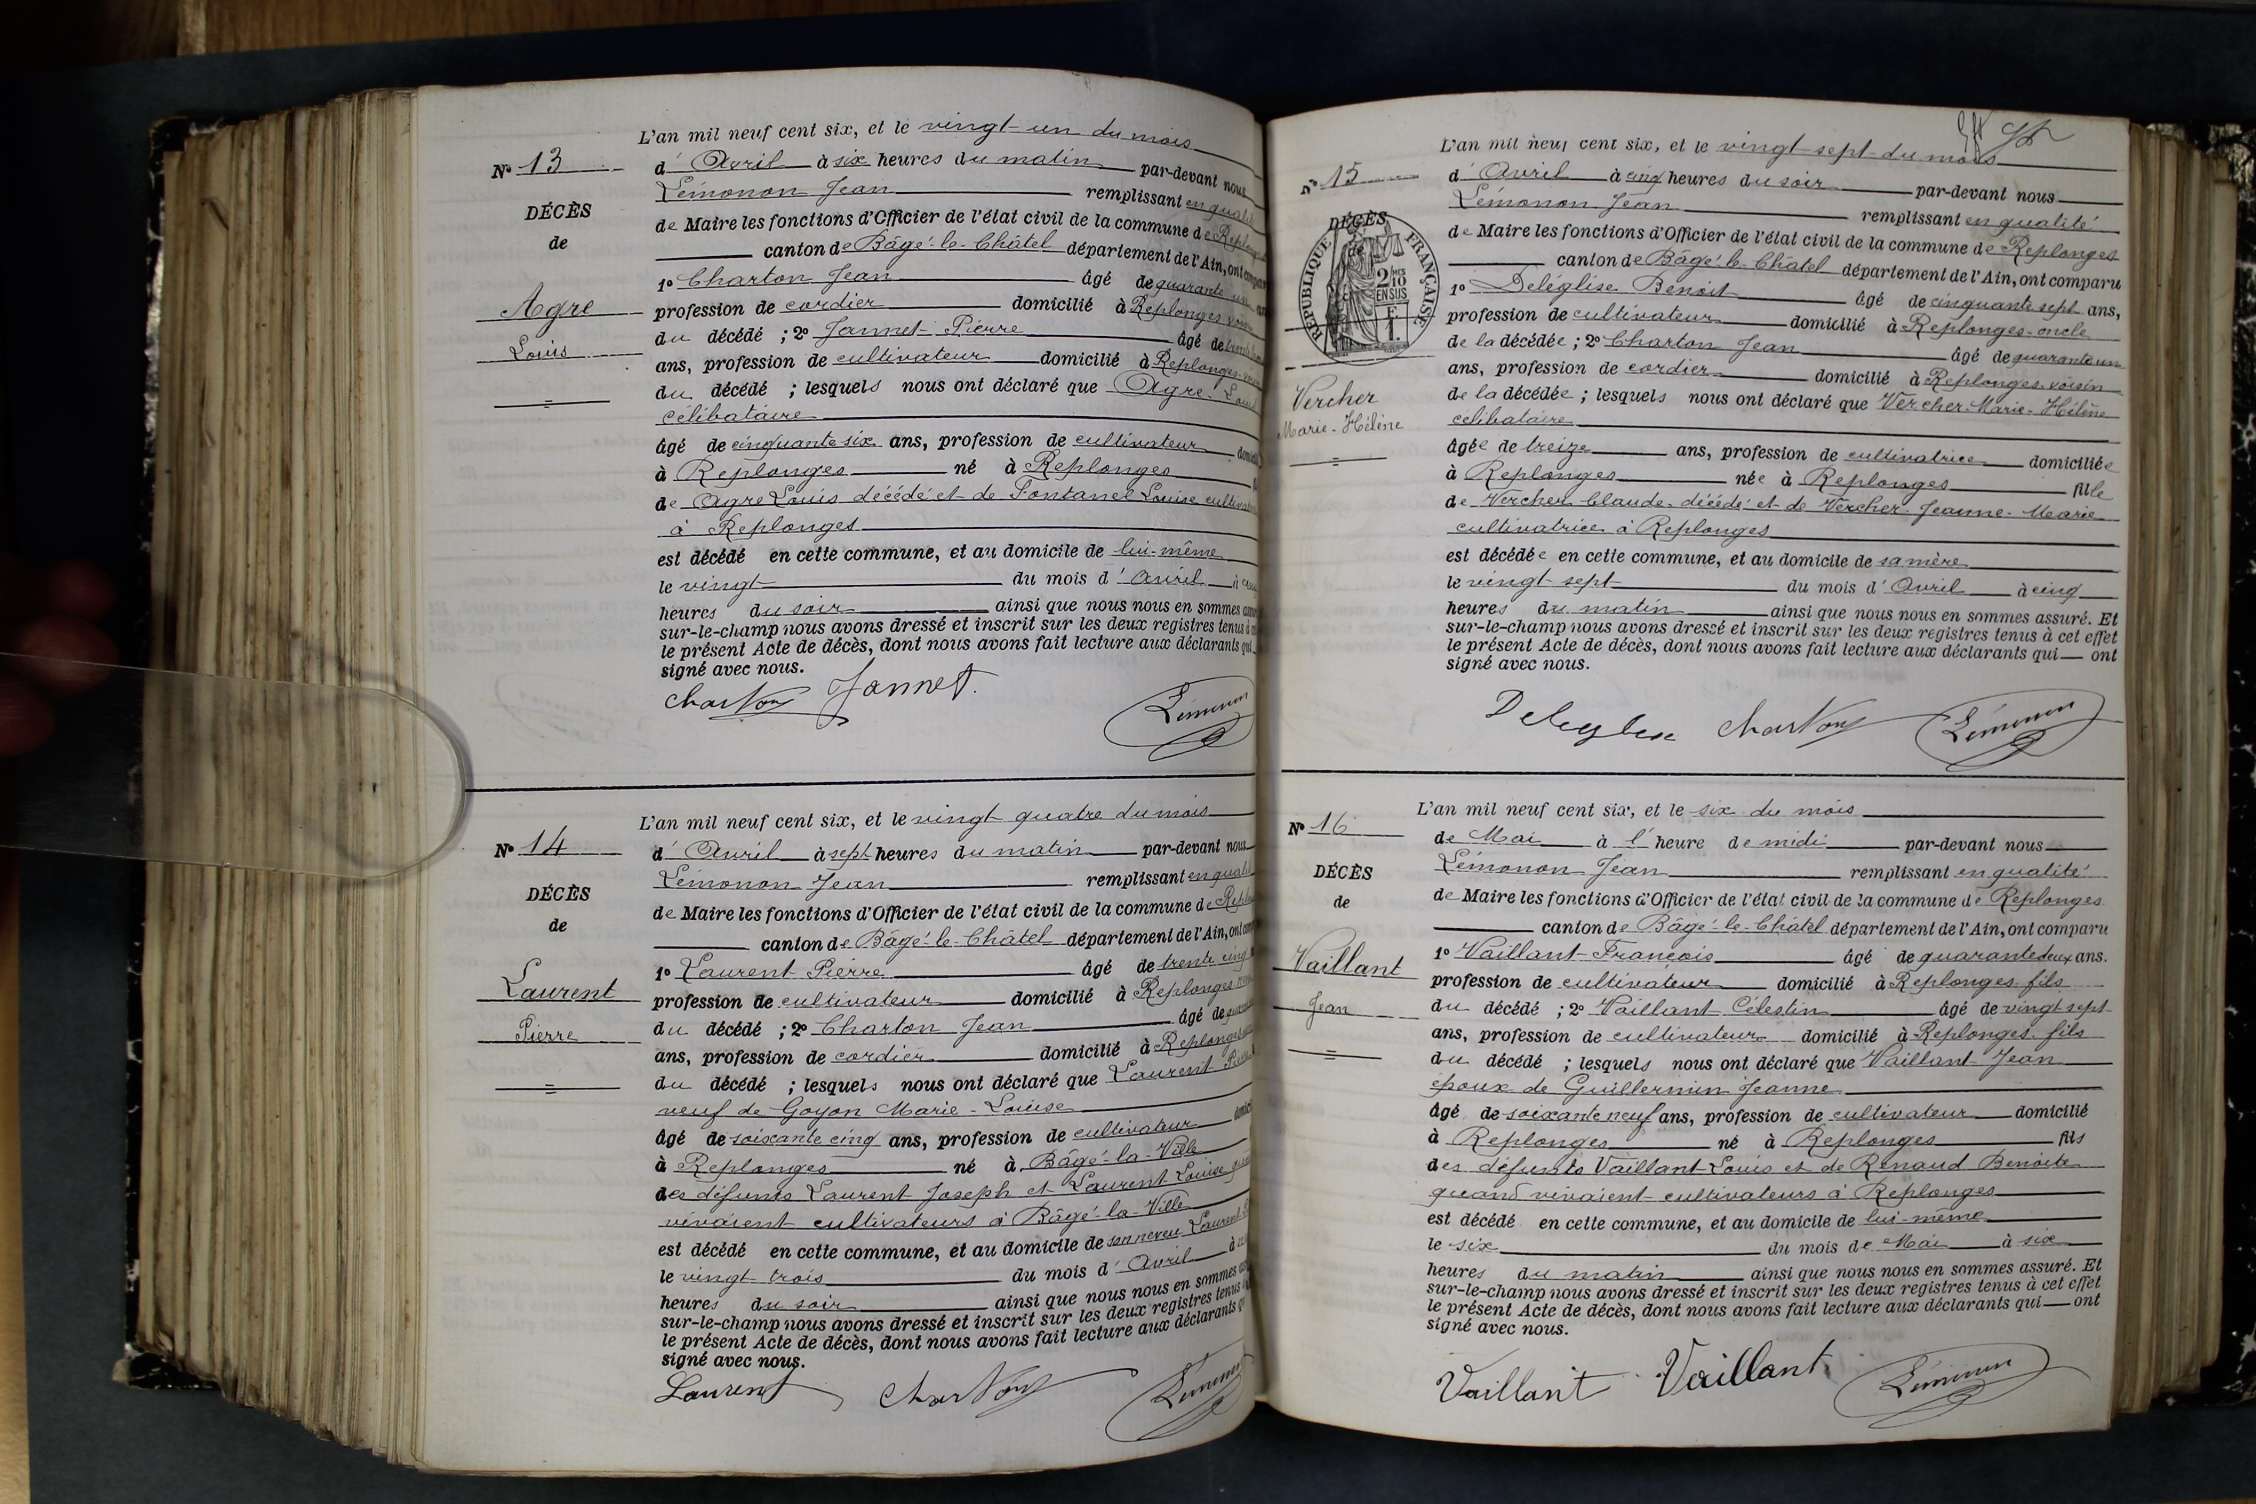 L'an mil neuf cent six, et le vingt-un du mois
N° 13
d' Avril à six heures du matin par-devant nous
Lémonon Jean remplissant en qualité
DÉCÈS
de Maire les fonctions d'Officier de l'état civil de la commune de Replonges
de
canton de Bâgé-le-Châtel département de l'Ain, ont comparu
1° Charton Jean âgé de quarante un ans
Agre
profession de cordier domicilié à Replonges voisin
Louis
du décédé ; 2° Jannet Pierre âgé de
ans, profession de cultivateur domicilié à Replonges voisin
du décédé ; lesquels nous ont déclaré que Agre Louis
célibataire
âgé de cinquante six ans, profession de cultivateur domicilié
à Replonges né à Replonges
de Agre Louis décédé et de Fontanel Louise cultivatrice
à Replonges
est décédé en cette commune, et au domicile de lui-même
le vingt du mois d' Avril à
heures du soir ainsi que nous nous en sommes assuré
sur-le-champ nous avons dressé et inscrit sur les deux registres tenus à
le présent Acte de décès, dont nous avons fait lecture aux déclarants qui
signé avec nous.
Charton Jannet.
Lémonon
L'an mil neuf cent six, et le vingt quatre du mois
N° 14
d' Avril à sept heures du matin par-devant nous
Lémonon Jean remplissant en qualité
DÉCÈS
de Maire les fonctions d'Officier de l'état civil de la commune de Replonges
de
canton de Bâgé-le-Châtel département de l'Ain, ont comparu
1° Laurent Pierre âgé de trente cinq
Laurent
profession de cultivateur domicilié à Replonges neveu
Pierre
du décédé ; 2° Charton Jean âgé de quarante
ans, profession de cordier domicilié à Replonges
du décédé ; lesquels nous ont déclaré que Laurent Pierre
veuf de Goyon Marie-Louise
âgé de soixante cinq ans, profession de cultivateur domicilié
à Replonges né à Bâgé-la-Ville
des défunts Laurent Joseph et Laurent Louise quand
vivaient cultivateurs à Bâgé-la-Ville
est décédé en cette commune, et au domicile de son neveu Laurent
le vingt trois du mois d' Avril à
heures du soir ainsi que nous nous en sommes
sur-le-champ nous avons dressé et inscrit sur les deux registres tenus
le présent Acte de décès, dont nous avons fait lecture aux déclarants qui
signé avec nous.
Laurent Charton Lémonon
L'an mil neuf cent six, et le vingt-sept du mois
N° 15
d' Avril à cinq heures du soir par-devant nous
Lémonon Jean remplissant en qualité
DÉCÈS
de Maire les fonctions d'Officier de l'état civil de la commune de Replonges
de
RÉPUBLIQUE FRANÇAISE
2/10 EN SUS
canton de Bâgé-le-Châtel département de l'Ain, ont comparu
1° Deléglise Benoit âgé de cinquante sept ans,
profession de cultivateur domicilié à Replonges oncle
de la décédée ; 2° Charton Jean âgé de quarante un
ans, profession de cordier domicilié à Replonges voisin
Vercher
de la décédée ; lesquels nous ont déclaré que Vercher Marie-Hélène
Marie-Hélène
célibataire
âgée de treize ans, profession de cultivatrice domiciliée
à Replonges née à Replonges fille
de Vercher Claude décédé et de Vercher Jeanne-Marie
cultivatrice à Replonges
est décédée en cette commune, et au domicile de sa mère
le vingt sept du mois d' Avril à cinq
heures du matin ainsi que nous nous en sommes assuré. Et
sur-le-champ nous avons dressé et inscrit sur les deux registres tenus à cet effet
le présent Acte de décès, dont nous avons fait lecture aux déclarants qui ont
signé avec nous.
Deleglise Charton Lémonon
L'an mil neuf cent six, et le six du mois
N° 16
de Mai à l' heure de midi par-devant nous
Lémonon Jean remplissant en qualité
DÉCÈS
de Maire les fonctions d'Officier de l'état civil de la commune de Replonges
de
canton de Bâgé-le-Châtel département de l'Ain, ont comparu
1° Vaillant François âgé de quarante deux ans.
Vaillant
profession de cultivateur domicilié à Replonges fils
Jean
du décédé ; 2° Vaillant Célestin âgé de vingt sept
ans, profession de cultivateur domicilié à Replonges fils
du décédé ; lesquels nous ont déclaré que Vaillant Jean
époux de Guillermin Jeanne
âgé de soixante neuf ans, profession de cultivateur domicilié
à Replonges né à Replonges fils
des défunts Vaillant Louis et de Renaud Benoite
quand vivaient cultivateurs à Replonges
est décédé en cette commune, et au domicile de lui-même
le six du mois de Mai à six
heures du matin ainsi que nous nous en sommes assuré. Et
sur-le-champ nous avons dressé et inscrit sur les deux registres tenus à cet effet
le présent Acte de décès, dont nous avons fait lecture aux déclarants qui ont
signé avec nous.
Vaillant Vaillant Lémonon